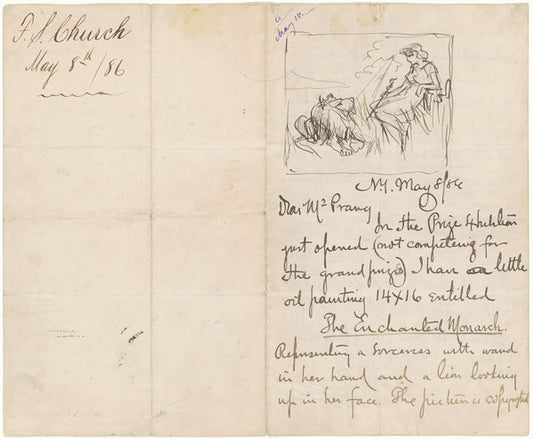 F. S. Church
May 8th/86
a
May 10.
N.Y. May 8/86
Dear Mr Prang
In the Prize Exhibition
just opened (not competing for
the grand prizes) I have a little
oil painting 14x16 entitled
The Enchanted Monarch.
Representing a sorceress with wand
in her hand and a lion looking
up in her face. The picture is copyrighted